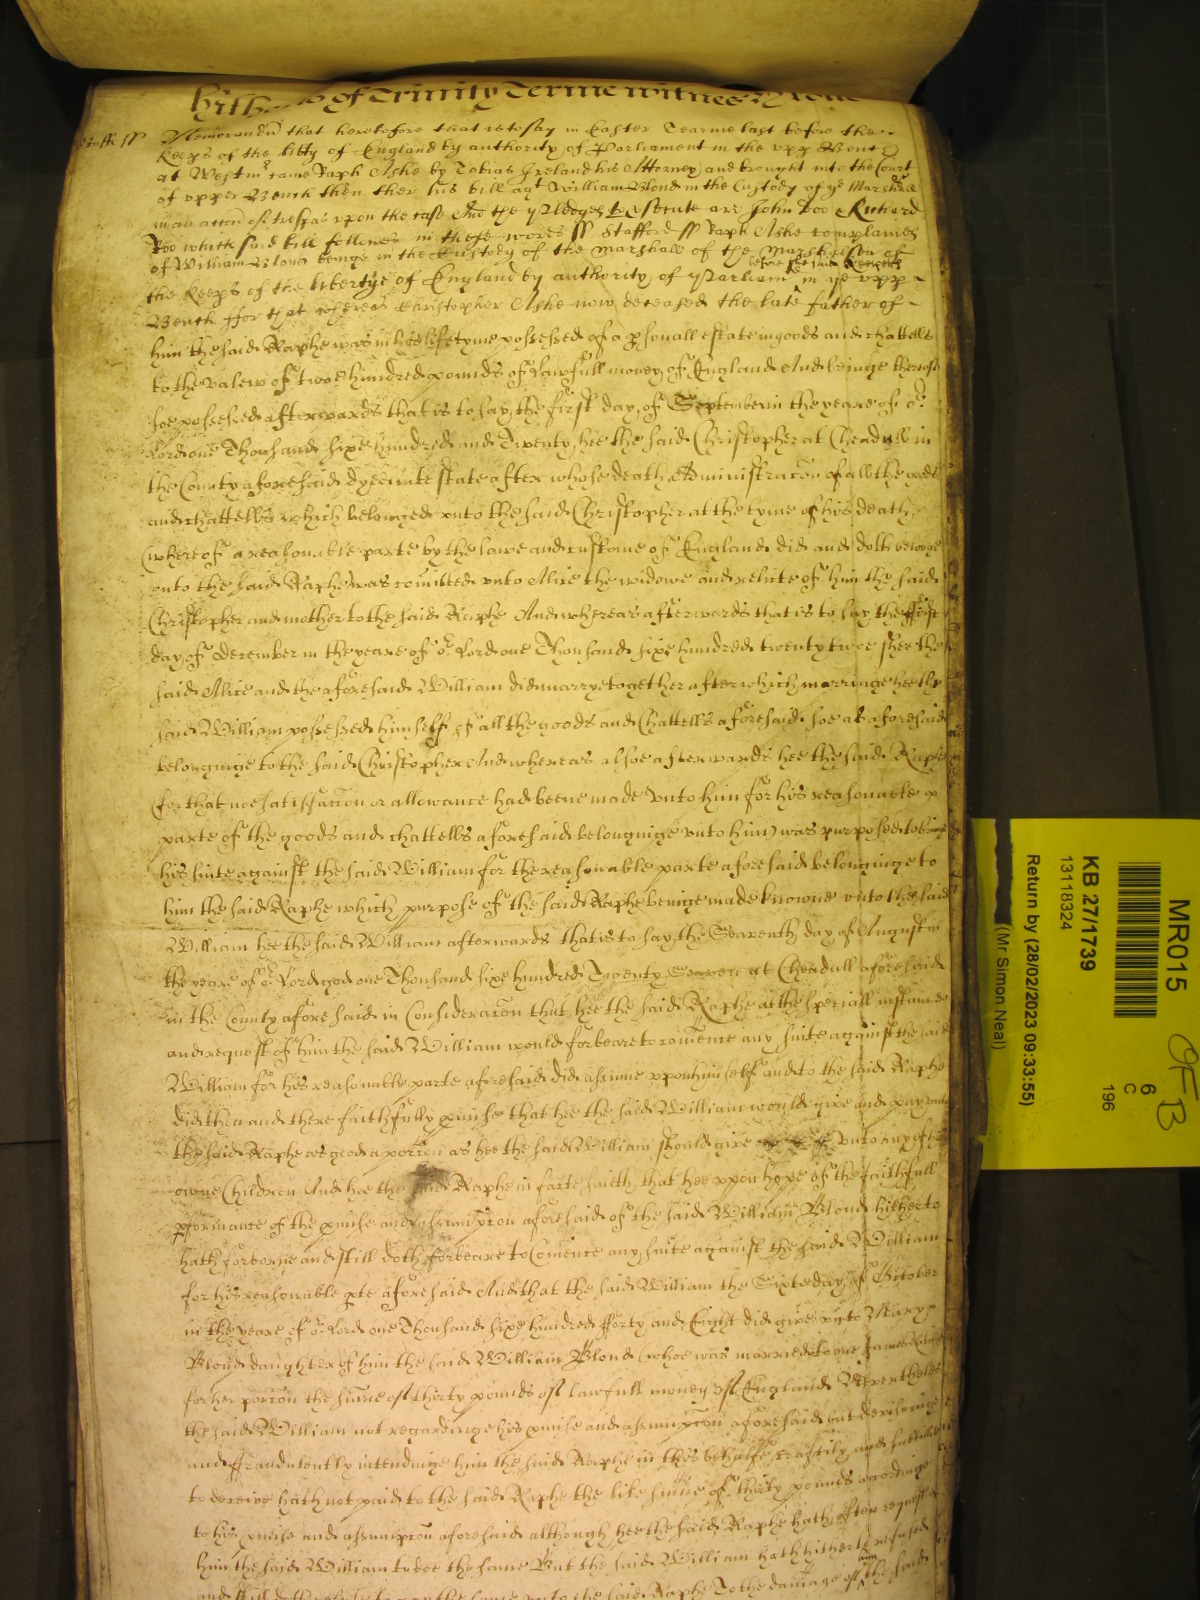 of Trinity Terme witnes
Staff ss Memorandu that heretofore that is to say in Easter Tearme last before the
Keeps of the libty of England by authority of Parliament in the upp Bench
at Westmr came Raph Ashe by Tobias Ireland his Attorney and brought into the Court
of upper Bench then ther his bill agt William Blond in the Custody of ye Marshall
in an accon of trespas upon the case And the Pledges to psecute are John Doo Richard
Roo which said bill followes in these words ss Stafford ss Raph Ashe complaines
of William Blond beinge in the Custody of the Marshall of the Marshalsea of
before the said Keepers
the Keeps of the libertye of England by authority of Parliamt in ye upp
Bench ffor that whereas Christopher Ashe now deceased the late father of
him the said Raphe was in his life tyme possessed of a psonall estate in goods and chattells
to the valew of two hundred pounds of lawfull money of England And beinge thereof
soe possessed afterwards that is to say the first day of September in the yeare of or
Lord one Thousand sixe hundred and Twenty hee the said Christopher at Cheadull in
the County aforesaid dyed intestate after whose death Administracon of all the goods
and chattells which belonged unto the said Christopher at the tyme of his death
(whereof a reasonable parte by the lawe and custome of England did and doth belonge
unto the said Raphe) was comitted unto Alice the widowe and relicte of him the said
Christopher and mother to the said Raphe And whereas afterwards that is to say the ffirst
day of December in the yeare of or Lord one Thousand sixe hundred twenty twoe shee the
said Alice and the aforesaid William did marrye together after which marriage hee the
said William possessed himself of all the goods and Chattells aforesaid soe as aforesaid
belonginge to the said Christopher And whereas alsoe afterwards hee the said Raphe
(for that noe satisfaccon or allowance had beene made unto him for his reasonable p
parte of the goods and chattells aforesaid belonginge unto him) was purposed to bringe
his suite against the said William for the reasonable parte aforesaid belonginge to
him the said Raphe which purpose of the said Raphe beinge made knowne unto the said
William hee the said William afterwards that is to say the Seaventh day of August in
the yeare of or Lord god one Thousand sixe hundred Twenty Seaven at Cheadull aforesaid
in the County aforesaid in Consideracon that hee the said Raphe at the speciall instance
and request of him the said William would forbeare to comence any suite against the said
William for his reasonable parte aforesaid did assume upon himself and to the said Raphe
did then and there faithfully pmise that hee the said William would give and pay unto
the said Raphe as good a porcon as hee the said William should give unto any of his
owne Children And hee the said Raphe in facte saieth that hee uppon hope of the faithfull
pformance of the pmise and assumpcon aforesaid of the said William Blond hitherto
hath forborne and still doth forbeare to Comence any suite against the said William
for his reasonable pte aforesaid And that the said William the Sixte day of October
in the yeare of or Lord one Thousand sixe hundred fforty and Eight did give unto Mary
Blond daughter of him the said William Blond (whoe was married to one James
for her porcon the sume of thirty pounds of lawfull money of England Neverthelesse
the said William not regardinge his pmise and assumpcon aforesaid but devisinge
and ffraudulently intendinge him the said Raphe in this behalfe craftily and subtilly
to deceive hath not paid to the said Raphe the like sume of thirty pounds accordinge
to his pmise and assumpcon aforesaid although hee the said Raphe hath often requested
him the said William to doe the same But the said William hath hitherto refused
and still doth refuse to pay the same unto the said Raphe To the damage of him the said
MR015
KB 27/1739
13118324
Return by (28/02/2023 09:33:55)
(Mr Simon Neal)
6
C
196
OFB